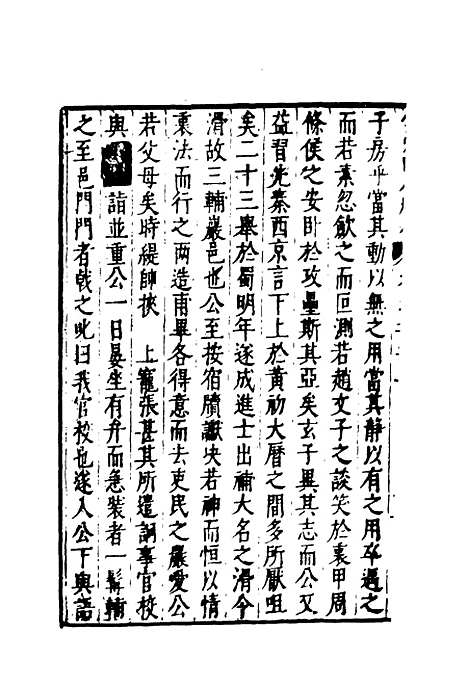 子房乎當其動以無之用當其靜以有之用卒遇之
而若素忽飲之而叵測若趙文子之談笑於衷甲周
條侯之安卧於攻壘斯其亞矣玄子異其志而公又
益習先秦西京言下上於黃初大曆之間多所厭咀
矣二十三舉於蜀明年遂成進士出補大名之滑令
滑故三輔巖邑也公至按宿牘讞决若神而恒以情
裏法而行之两造甫畢各得意而去吏民之嚴愛公
若父母矣時緹帥挾 上寵張甚其所遣詗事官校
與 詣並重公一日晏坐有弁而急裝者一髯輔
之至邑門門者戟之叱曰我官校也遂入公下與語